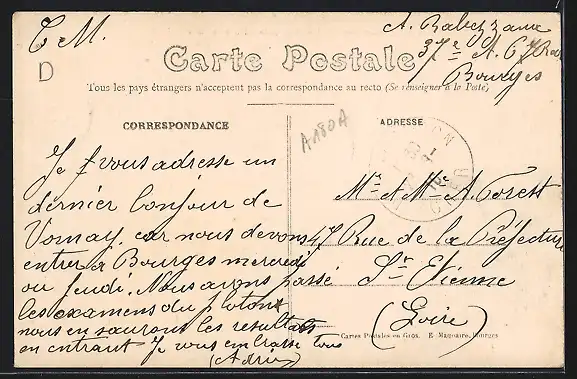 F M.
A. Rabezzana
37e A. 6e
Bourges
D
Carte Postale
Tous les pays étrangers n'acceptent pas la correspondance au recto (Se renseigner à la Poste)
CORRESPONDANCE
A180A
ADRESSE
Je vous adresse un
dernier bonjour de
Vornay, car nous devons
entrer à Bourges mercredi
ou jeudi. Nous avons passé
les examens du peloton
nous en saurons les resultats
en entrant Je vous embrasse tous
(Adrien)
Mr et Mme A. Forest
47 Rue de la Préfecture
St Etienne
(Loire)
Cartes Postales en Gros. E. Maquaire, Bourges